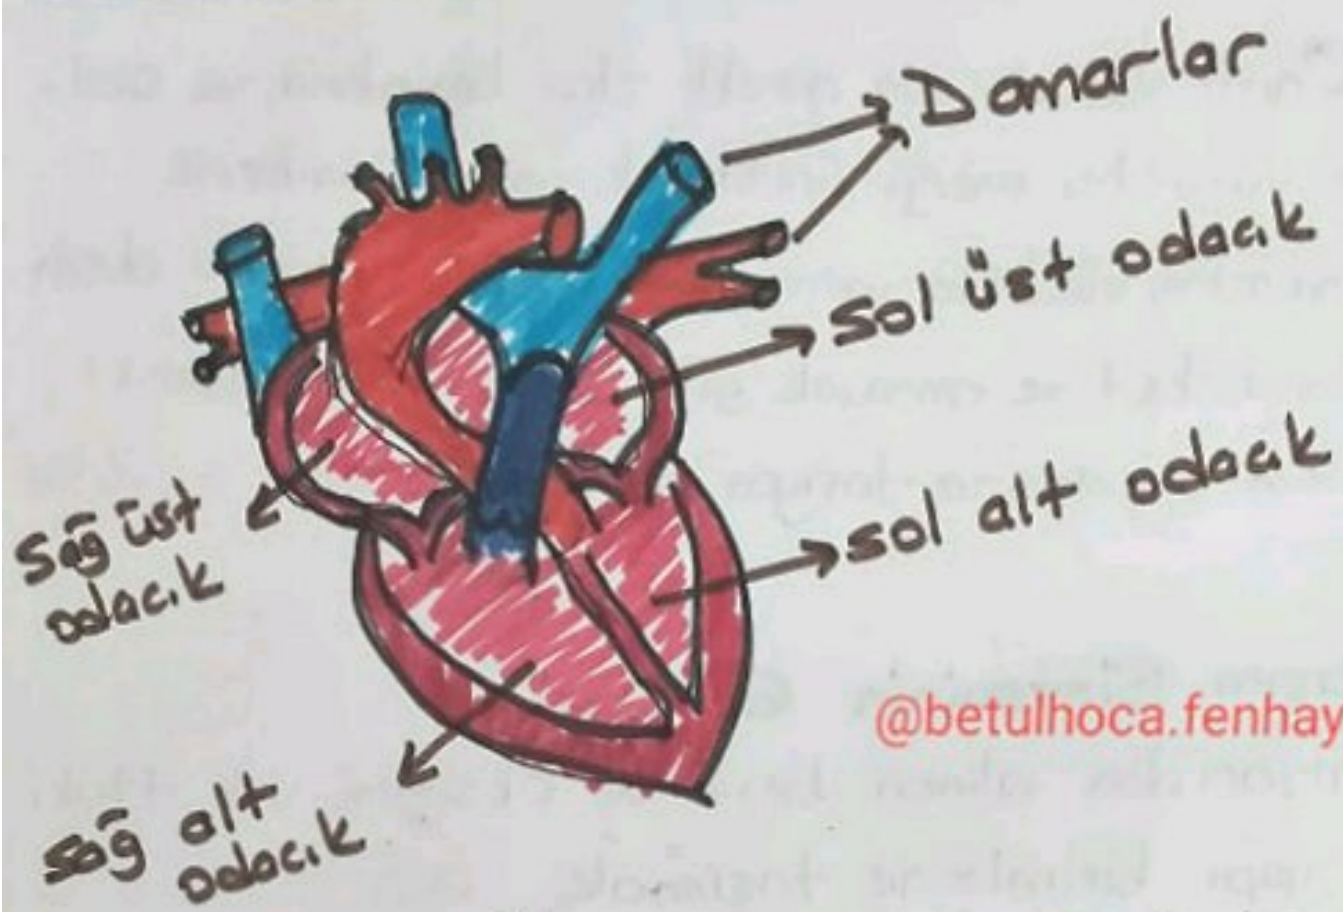 Damarlar
sol üst odacık
sol alt odacık
sağ üst
odacık
sağ alt
odacık
@betulhoca.fenhay